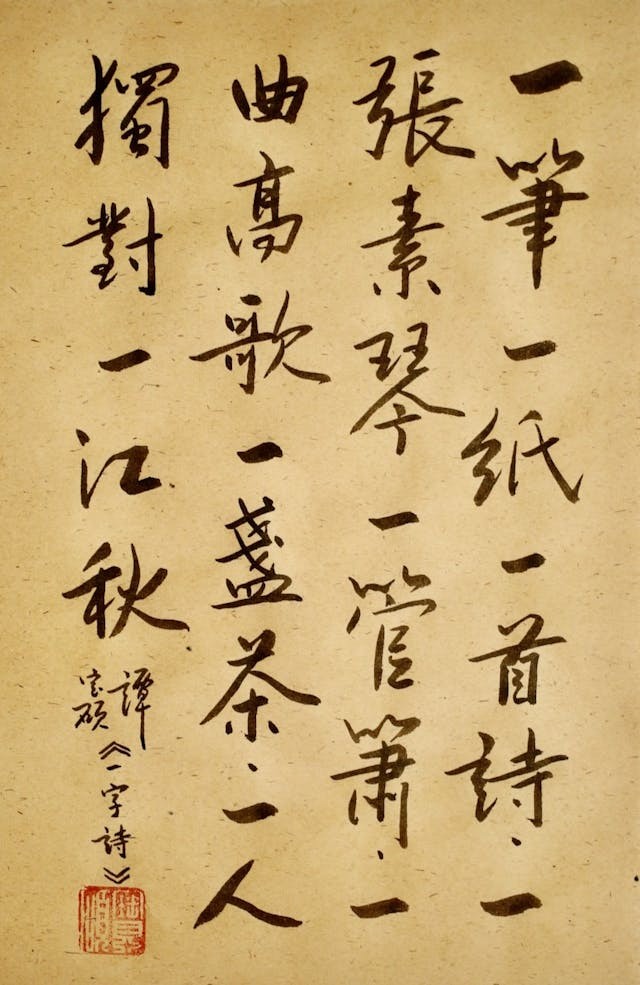 一筆一紙一首詩、一
張素琴一管簫、一
曲高歌一盞茶、一人
獨對一江秋
譚
宏碩
《一字詩》